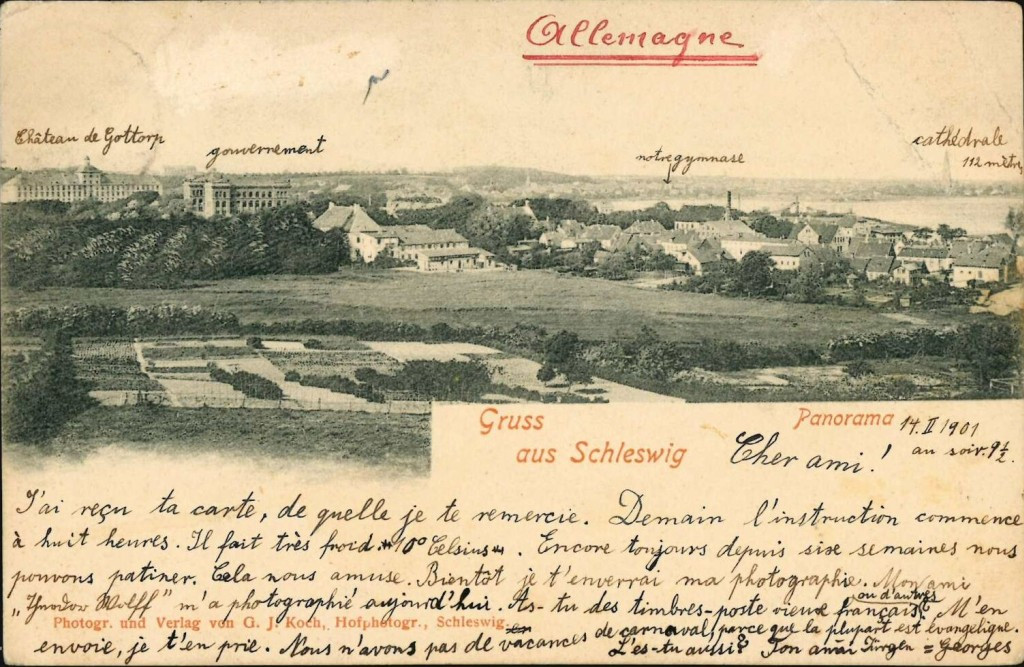 Allemagne
Château de Gottorp
gouvernement
notre gymnase
cathédrale
112 mètres
Gruss
aus Schleswig
Panorama
14. II 1901
au soir. 9½.
Cher ami!
J'ai reçu ta carte, de quelle je te remercie. Demain l'instruction commence
à huit heures. Il fait très froid -10° Celsius. Encore toujours depuis sixe semaines nous
pouvons patiner. Cela nous amuse. Bientôt je t'enverrai ma photographie. Mon ami
„Theodor Wolff" m'a photographié aujourd'hui. As-tu des timbres-poste vieux français ou d'autres? M'en
Photogr. und Verlag von G. J. Koch, Hofphotogr., Schleswig.
envoie, je t'en prie. Nous n'avons pas de vacances de carnaval, parce que la plupart est évangelique.
L'es-tu aussi? Ton ami Jürgen = Georges